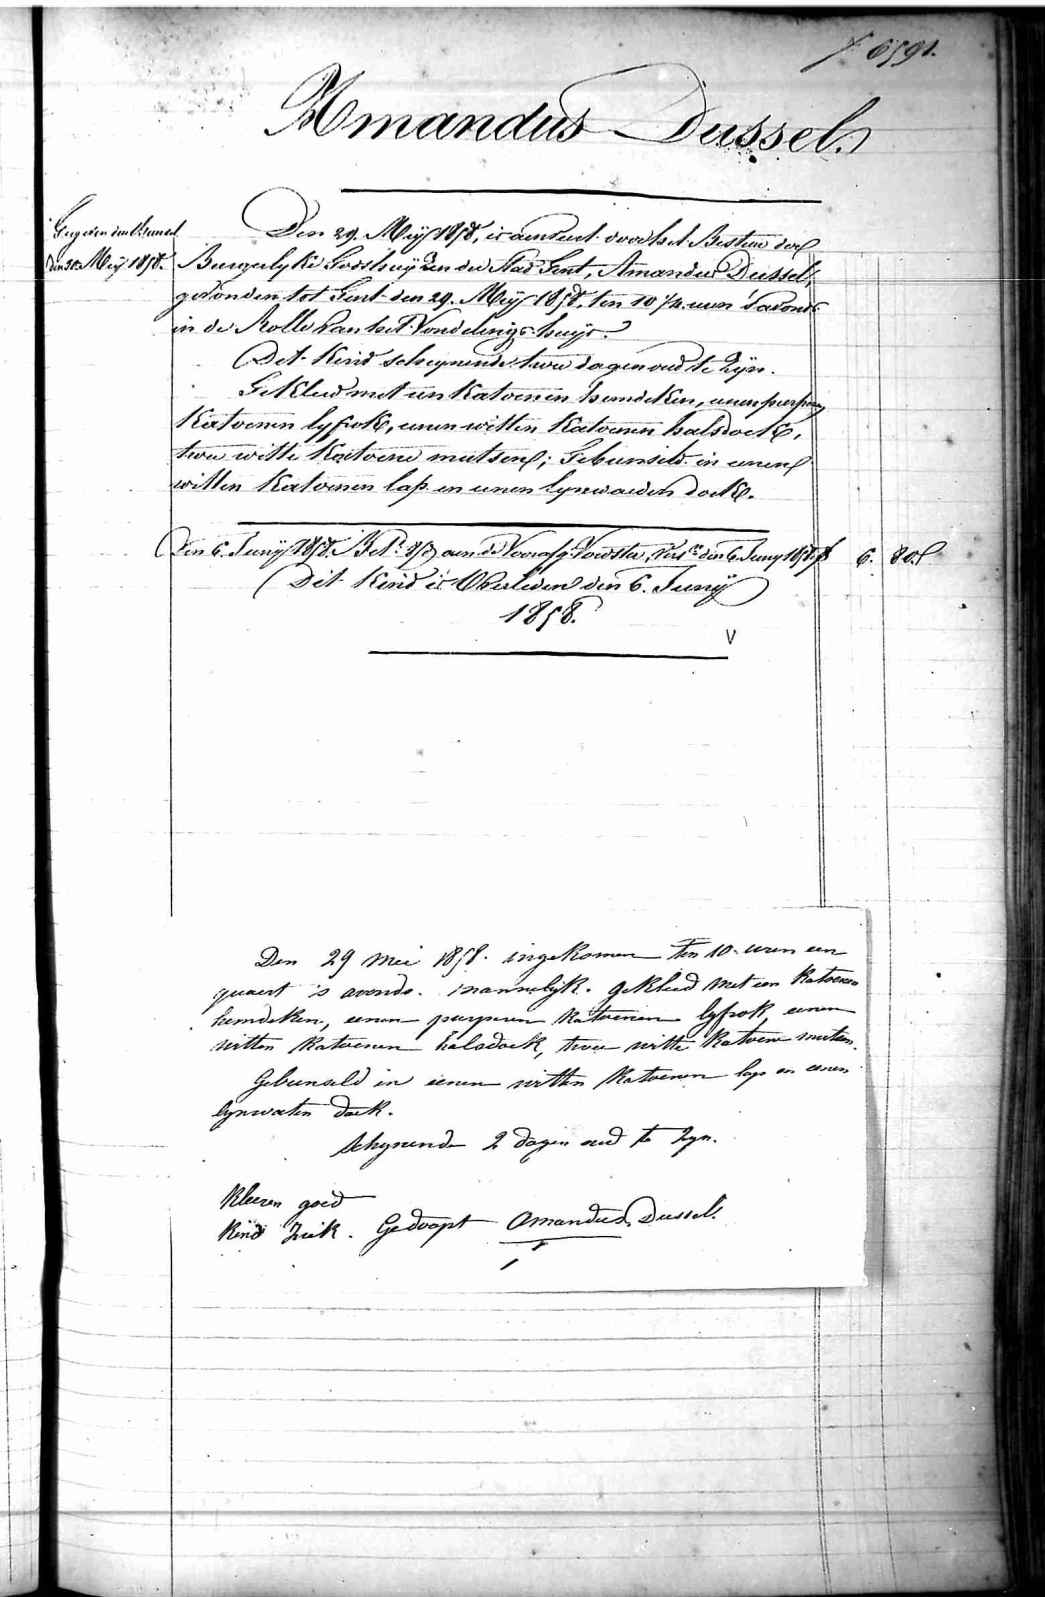 6591.
Amandus Dussel.
Den 29. Meij 1858, is aenveert door het Bestuer der
den 30. Meij 1858.
Burgerlyke Godshuijzen der Stad Gent, Amandus Dussel,
gevonden tot Gent den 29. Meij 1858, ten 10 1/4 uren 's avonds
in de Rolle van het Vondelings-huijs.
Dit Kind schynende twee dagen oud te zyn.
Gekleed met een Katoenen hemdeken, eenen purpren
Katoenen lyfrok, eenen witten Katoenen halsdoek,
twee witte Katoene mutsen; Gebunseld in eenen
witten Katoenen lap en eenen lynwaeden doek.
Den 6. Junij 1858. aen de Voedster, den 6. Junij 1858 f 6. 80.
Dit Kind is Overleden den 6. Junij
1858.
V
Den 29 mei 1858. ingekomen ten 10 uren een
quaert 's avonds. mannelijk. gekleed met een Katoenen
hemdeken, eenen purperen Katoenen lyfrok, eenen
witten Katoenen halsdoek, twee witte Katoene mutsen.
Gebunseld in eenen witten Katoenen lap en eenen
lynwaten doek.
Schynende 2 dagen oud te zyn.
Kleeren goed
Kind Ziek. Gedoopt Amandus Dussel.